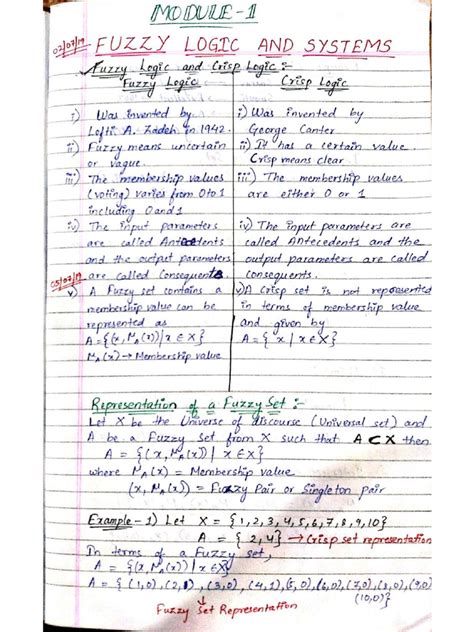 MODULE-1
02/07/19
FUZZY LOGIC AND SYSTEMS
Fuzzy Logic and Crisp Logic :-
Fuzzy Logic
i) Was invented by
Lofti A. Zadeh in 1942.
ii) Fuzzy means uncertain
or vague.
iii) The membership values
(voting) varies from 0 to 1
including 0 and 1
iv) The input parameters
are called Antecedents
and the output parameters
03/07/19
are called Consequents.
v) A Fuzzy set contains a
membership value can be
represented as
A = {(x, μA(x)) | x ∈ X}
μA(x) → Membership value
Crisp Logic
i) Was invented by
George Canter.
ii) It has a certain value.
Crisp means clear.
iii) The membership values
are either 0 or 1
iv) The input parameters are
called Antecedents and the
output parameters are called
consequents.
v) A Crisp set is not represented
in terms of membership value
and given by
A = { x | x ∈ X}
Representation of a Fuzzy Set :-
Let X be the Universe of discourse (Universal set) and
A be a Fuzzy Set from X such that A ⊂ X then
A = {(x, μA(x)) | x ∈ X}
where μA(x) = Membership value
(x, μA(x)) = Fuzzy Pair or Singleton pair
Example - 1) Let X = {1,2,3,4,5,6,7,8,9,10}
A = {2,4} → Crisp set representation
In terms of a Fuzzy set,
A = {(x, μA(x)) | x ∈ X}
A = {(1,0), (2,1), (3,0), (4,1), (5,0), (6,0), (7,0), (8,0), (9,0)
(10,0)}
Fuzzy Set Representation